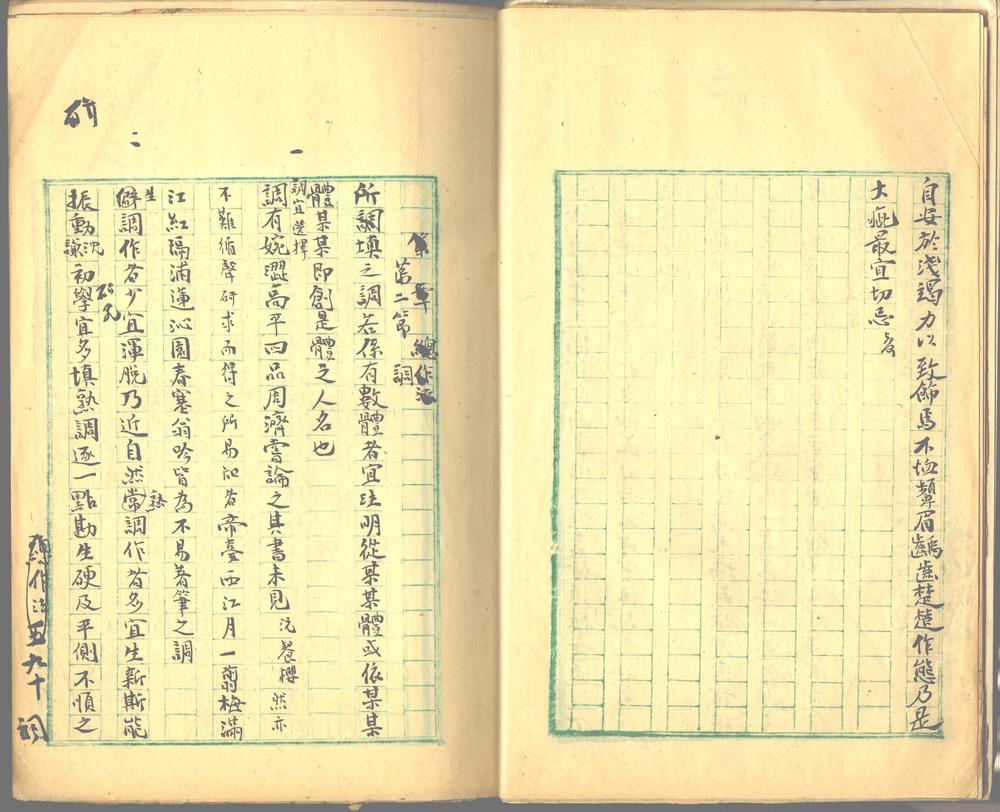 自安於淺竭力以致飾焉不恤顰眉齲齒楚楚作態乃是
大疵最宜切忌
章 總作法
第二節 調
所調填之調若係有數體者宜注明從某某體或依某某
體某某即創是體之人名也
調宜選擇
調有婉澀高平四品周濟嘗論之其書未見 況蕙櫻 然亦
不難循聲研求而得之所易知者帝臺西江月一翦梅滿
江紅隔浦蓮沁園春塞翁吟皆為不易著筆之調
僻調作者少宜渾脫乃近自然常調作者多宜生新斯能
生
熟
振動 沈謙 初學宜多填熟調逐一點勘生硬及平側不順之
一
二
總作法
五
九十
詞